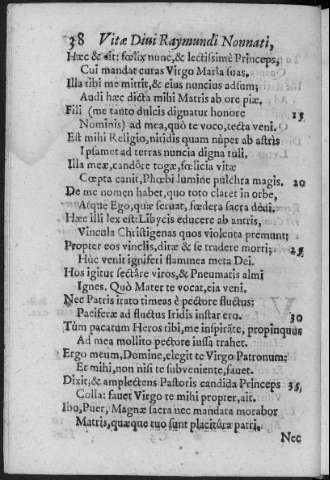 38 Vitæ Diui Raymundi Nonnati,
Hæc & ait: fœlix nunc, & lectissimè Princeps,
Cui mandat curas Virgo Marîa suas.
Illa tibi me mittit, & eius nuncius adsum;
Audi hæc dicta mihi Matris ab ore piæ.
Fili (me tanto dulcis dignatur honore 15
Nominis) ad mea, quò te voco, tecta veni.
Est mihi Religio, nitidis quam nùper ab astris
Ipsamet ad terras nuncia digna tuli.
Illa meæ, candôre togæ, fœlicia vitæ
Cœpta canit, Phœbi lumine pulchra magis. 20
De me nomen habet, quo toto claret in orbe,
Atque Ego, quæ seruat, fœdera sacra dedi.
Hæc illi lex est: Libycis educere ab antris,
Vincula Christigenas quos violenta premunt;
Propter eos vinclis, ditæ & se tradere morti; 25
Hûc venit igniferi flammea meta Dei.
Hos igitur sectâre viros, & Pneumatis almi
Ignes. Quò Mater te vocat, eia veni.
Nec Patris irato timeas è pectore fluctus:
Paciferæ ad fluctus Iridis instar ero. 30
Tùm pacatum Heros tibi, me inspirâte, propinquus
Ad mea mollito pectore iussa trahet.
Ergo meum, Domine, elegit te Virgo Patronum;
Et mihi, non nisi te subveniente, fauet.
Dixit; & amplectens Pastoris candida Princeps 35
Colla: fauet Virgo te mihi propter, ait.
Ibo, Puer, Magnæ sacra nec mandata morabor
Matris, quæque tuo sunt placitûra patri.
Nec